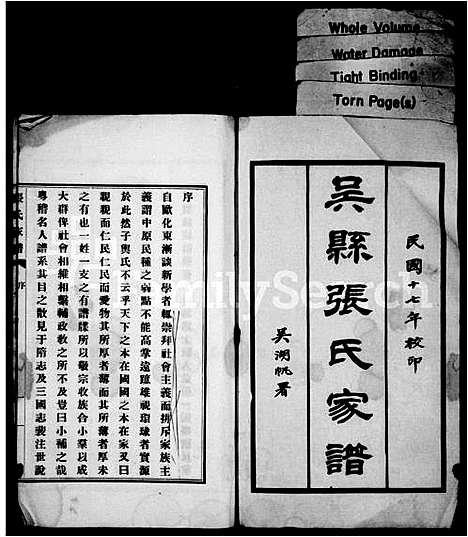 Whole Volume
Water Damage
Tight Binding
Torn Page(s)
民國十七年校印
吳縣張氏家譜
吳湖帆署
序
自歐化東漸談新學者輒崇拜社會主義而排斥家族主
義謂中原民種之弱點不能高掌遠蹠雄視環球者實源
於此然子輿氏不云乎天下之本在國國之本在家又曰
親親而仁民仁民而愛物其所厚者薄而其所薄者厚未
之有也一姓一支之有譜牒所以敬宗收族合小羣以成
大群俾社會相維相繫輔政教之所不及豈曰小補之哉
粵稽名人譜系其目之散見于隋志及三國志裴注世說
張氏家譜
序
FamilySearch